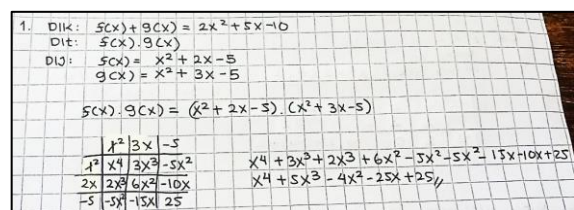 1. DIK: f(x) + g(x) = 2x² + 5x - 10
DIt: f(x) . g(x)
DIJ: f(x) = x² + 2x - 5
g(x) = x² + 3x - 5
f(x) . g(x) = (x² + 2x - 5) . (x² + 3x - 5)
x² | 3x | -5
x² | x⁴ | 3x³ | -5x²
2x | 2x³ | 6x² | -10x
-5 | -5x² | -15x | 25
x⁴ + 3x³ + 2x³ + 6x² - 5x² - 5x² - 15x - 10x + 25
x⁴ + 5x³ - 4x² - 25x + 25 //